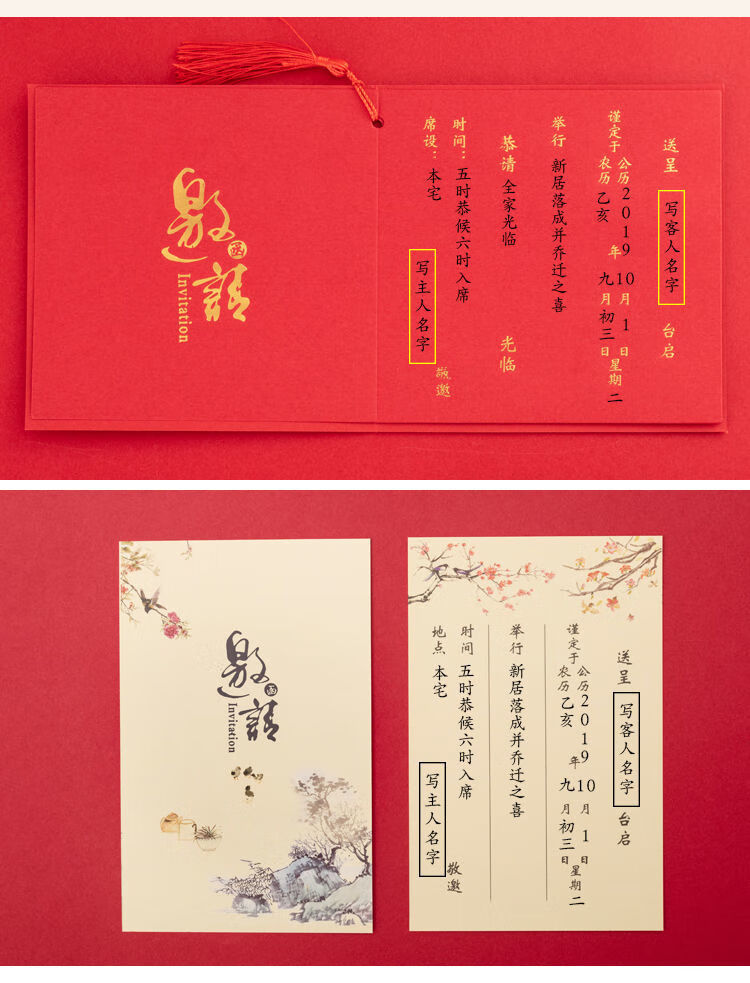 邀請
函
Invitation
送呈
写客人名字
台启
谨定于
公历2019年10月1日星期二
农历乙亥 九月初三日
举行 新居落成并乔迁之喜
恭请 全家光临
光临
时间：五时恭候六时入席
席设：本宅
写主人名字
敬邀
邀請
函
Invitation
送呈
写客人名字
台启
谨定于
公历2019年10月1日星期二
农历乙亥 九月初三日
举行 新居落成并乔迁之喜
时间 五时恭候六时入席
地点 本宅
写主人名字
敬邀